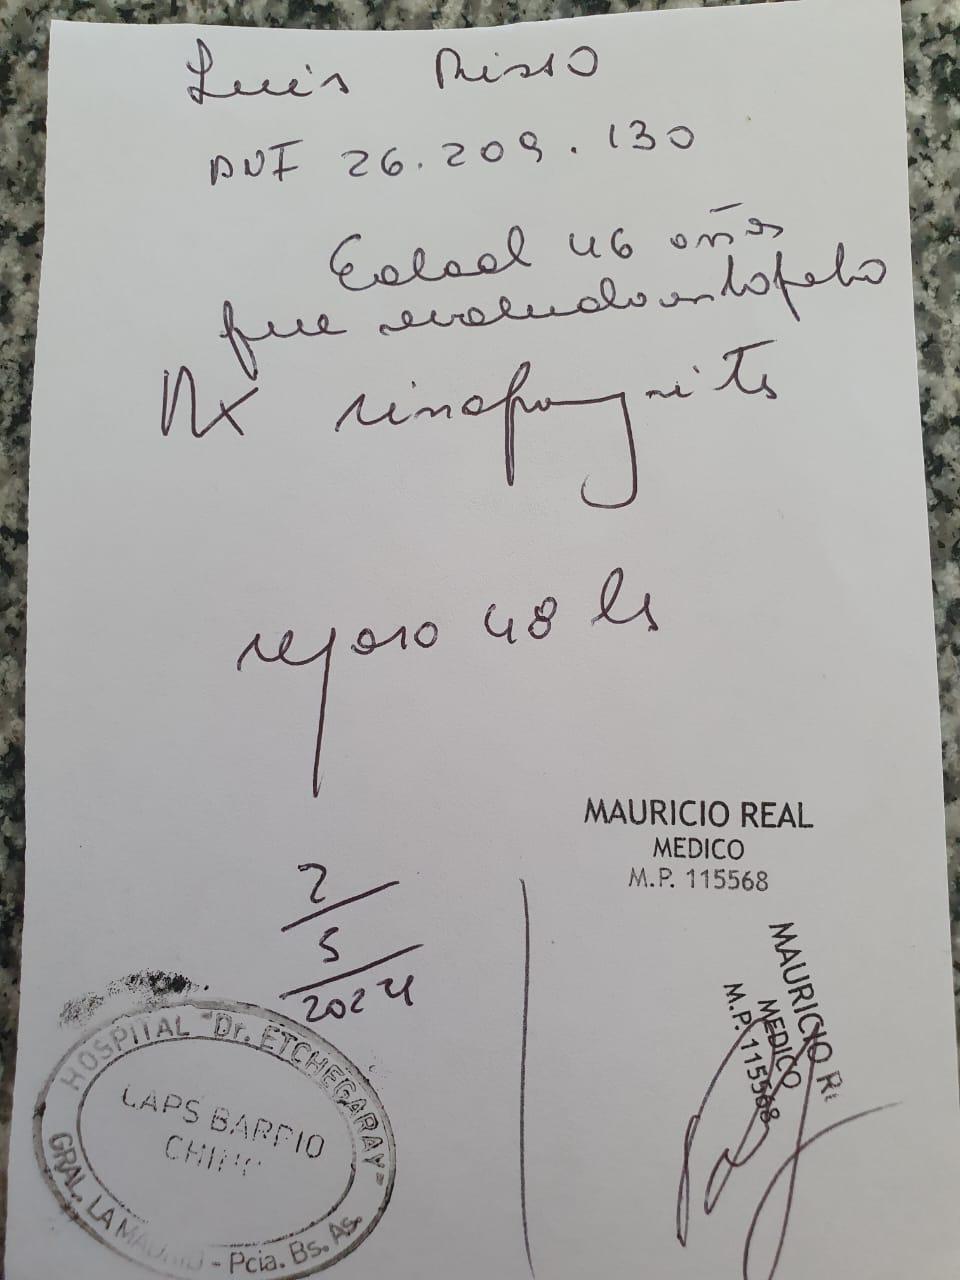 Luis Risso
DNI 26.209.130
Edad 46 años
fue evaluado en esta fecha
Dx rinofaringitis
reposo 48 hs
MAURICIO REAL
MEDICO
M.P. 115568
2/5/2024
MAURICIO RE
MEDICO
M.P. 115568
HOSPITAL "Dr. ETCHEGARAY"
CAPS BARRIO
GRAL. LA MADRID - Pcia. Bs. As.